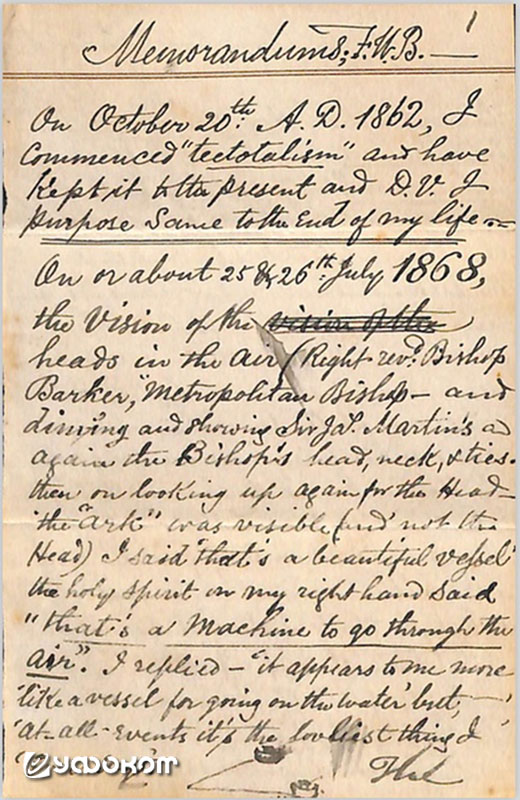 1
Memorandums; F.W.B. —
On October 20th A.D. 1862, I
Commenced "tectotalism" and have
Kept it to the present and D.V. I
purpose same to the End of my life —
On or about 25 & 26th July 1868,
the Vision of the vision of the
heads in the air (Right revd. Bishop
Barker, Metropolitan Bishop — and
diming and showing Sir Jas. Martin's a
again the Bishop's head, neck, & ties.
then on looking up again for the Head —
the "Ark" was visible (and not the
Head) I said 'that's a beautiful vessel'
the holy spirit on my right hand said
"that's a Machine to go through the
air". I replied — 'it appears to me more
'like a vessel for going on the water' but,
'at-all-events it's the lovliest thing I
УФОКОМ 2